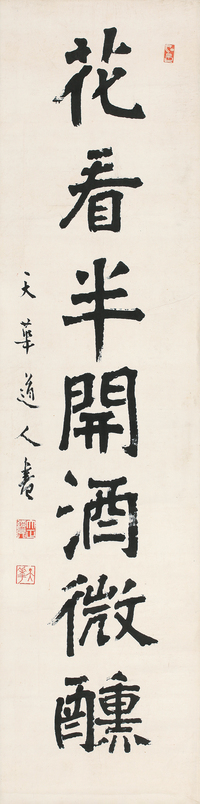 花看半開酒微醺
天華道人書